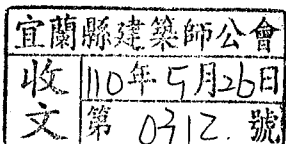 宜蘭縣建築師公會
收文
110年5月26日
第 0312. 號